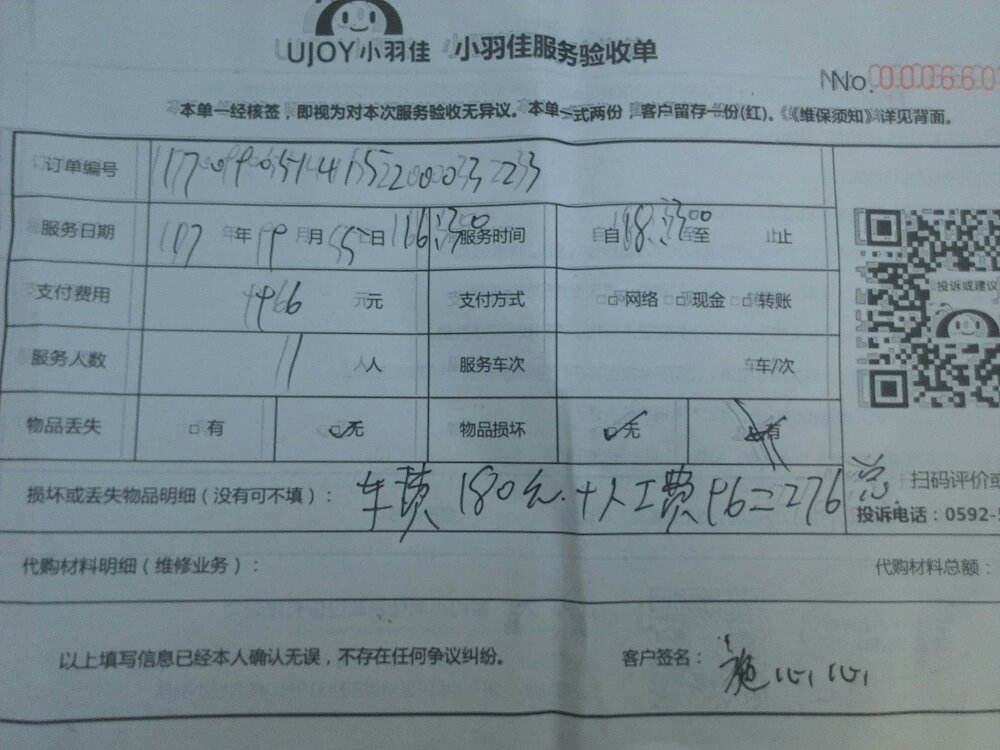 UJOY小羽佳 小羽佳服务验收单
No.000660
本单一经核签，即视为对本次服务验收无异议。本单一式两份，客户留存一份(红)。《维保须知》详见背面。
订单编号
服务日期 17 年 9 月 5 日 服务时间 自 至 止
支付费用 96 元 支付方式 □网络 □现金 □转账
服务人数 1 人 服务车次 车/次
物品丢失 □有 ☑无 物品损坏 ☑无 ☑有
投诉或建议
损坏或丢失物品明细（没有可不填）： 车费180元.+人工费96=276 总
扫码评价或
投诉电话：0592-5
代购材料明细（维修业务）： 代购材料总额：
以上填写信息已经本人确认无误，不存在任何争议纠纷。 客户签名： 施心心